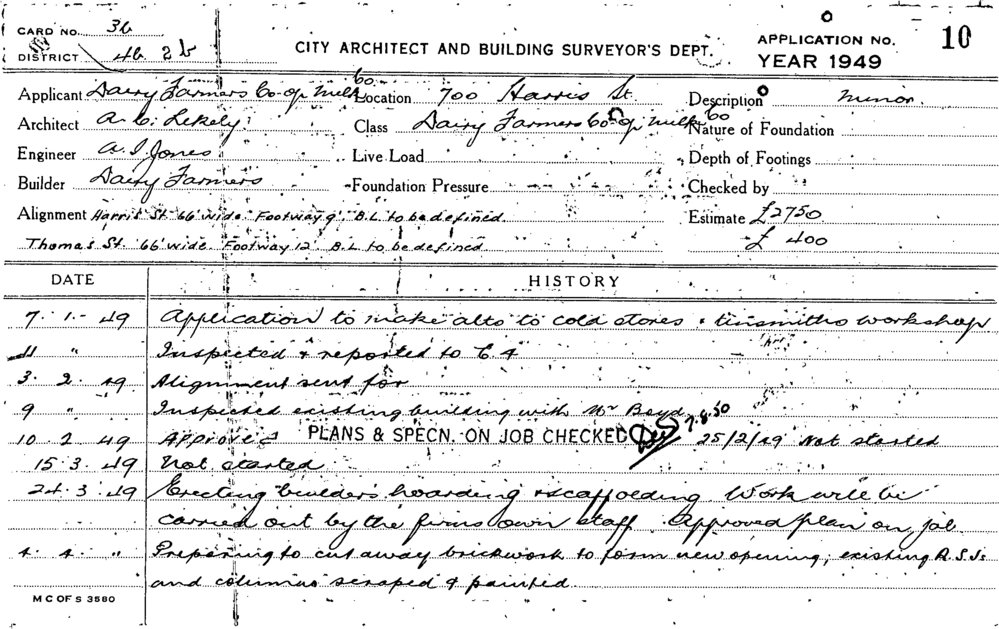 CARD NO. 3b
DISTRICT 4b 2b
CITY ARCHITECT AND BUILDING SURVEYOR'S DEPT.
APPLICATION NO. 10
YEAR 1949
Applicant Dairy Farmers Co-op Milk Co Location 700 Harris St. Description minor.
Architect Class Dairy Farmers Co-op Milk Co Nature of Foundation
Engineer Jones Live Load Depth of Footings
Builder Dairy Farmers Foundation Pressure Checked by
Alignment Harris St 66' wide Footway 9' B.L to be defined. Estimate £2750
Thomas St 66' wide Footway 12' B.L to be defined £ 400
DATE HISTORY
7. 1. 49 Application to make alts to cold stores & tinsmiths workshop
11 " Inspected & reported to
3. 2. 49 Alignment sent for
9 " Inspected existing building with Mr Boyd
10 2 49 Approved PLANS & SPECN. ON JOB CHECKED 7.8.50 25/2/49 Not started
15. 3. 49 Not started
24. 3. 49 Erecting builders hoarding & scaffolding. Work will be
carried out by the firms own staff. Approved plan on job
4. 4. " Preparing to cut away brickwork to form new opening; existing R.S.Js
and columns scraped & painted.
M C OF S 3580